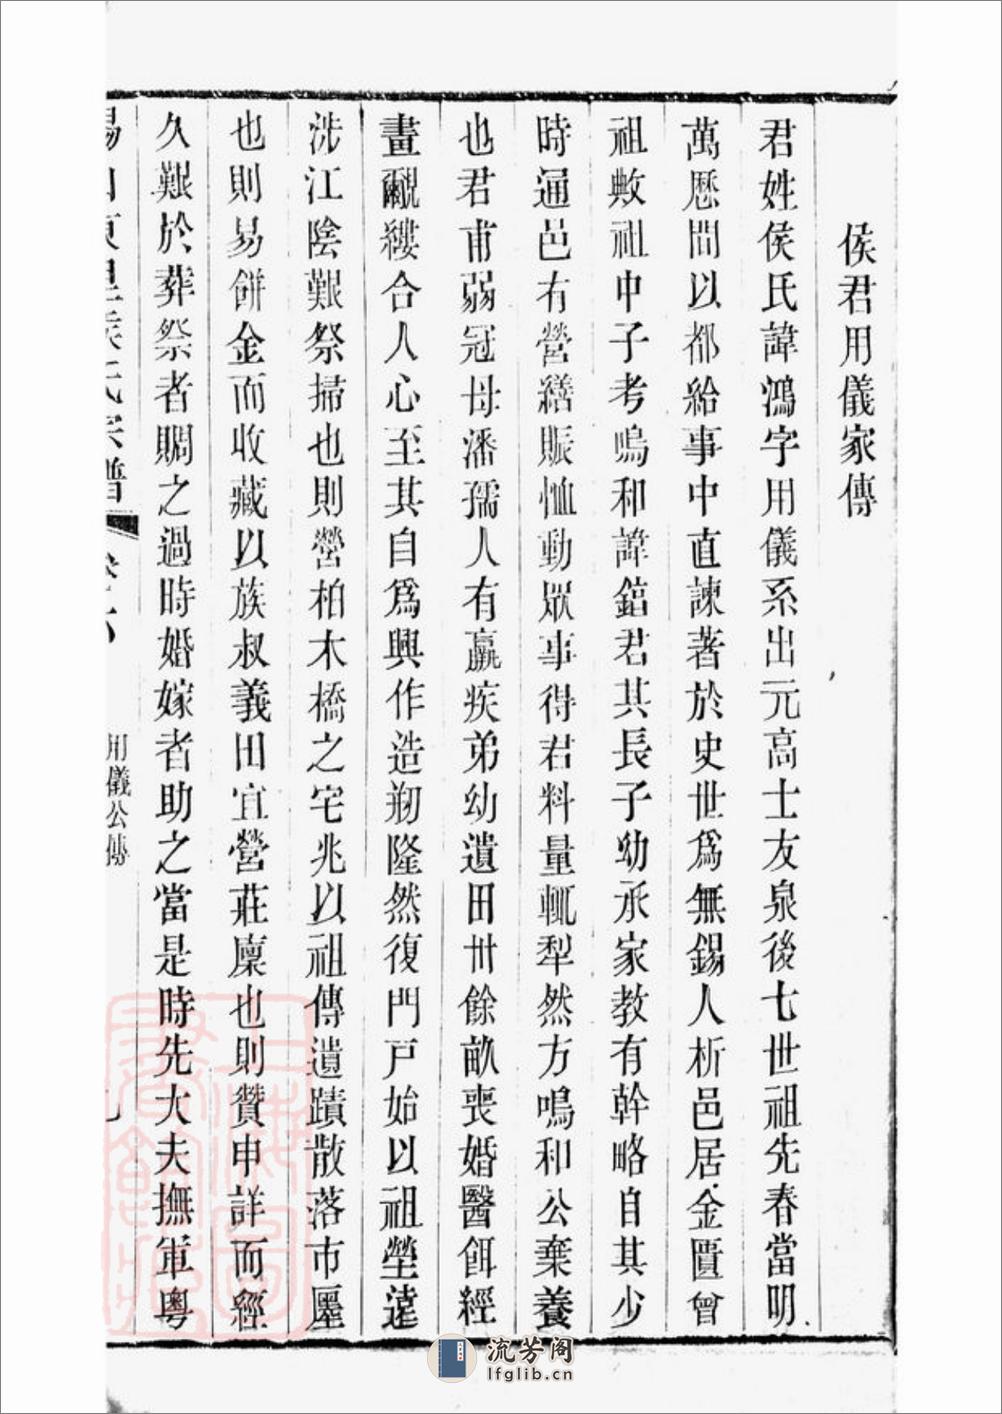 侯君用儀家傳
君姓侯氏諱鴻字用儀系出元高士友泉後七世祖先春當明
萬厯間以都給事中直諫著於史世爲無錫人析邑居金匱曾
祖敷祖中子考鳴和諱鎬君其長子幼承家教有幹略自其少
時通邑有營繕賑恤動眾事得君料量輒犁然方鳴和公棄養
也君甫弱冠母潘孺人有羸疾弟幼遺田卅餘畝喪婚醫餌經
畫覼縷合人心至其自爲興作造剏隆然復門戸始以祖塋遠
洮江陰艱祭掃也則營柏木橋之宅兆以祖傳遺蹟散落市廛
也則易餠金而收藏以族叔義田宜營莊廩也則贊申詳而經
久艱於葬祭者賙之過時婚嫁者助之當是時先大夫撫軍粵
錫山東里侯氏宗譜
用儀公傳
九
流芳阁
lfglib.cn